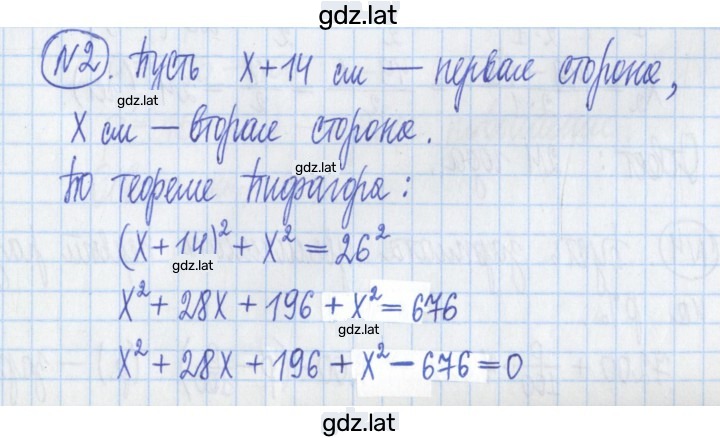 gdz.lat
N2. Пусть x+14 см — первая сторона,
gdz.lat
x см — вторая сторона.
gdz.lat
По теореме Пифагора:
(x+14)² + x² = 26²
gdz.lat
x² + 28x + 196 + x² = 676
gdz.lat
x² + 28x + 196 + x² - 676 = 0
gdz.lat